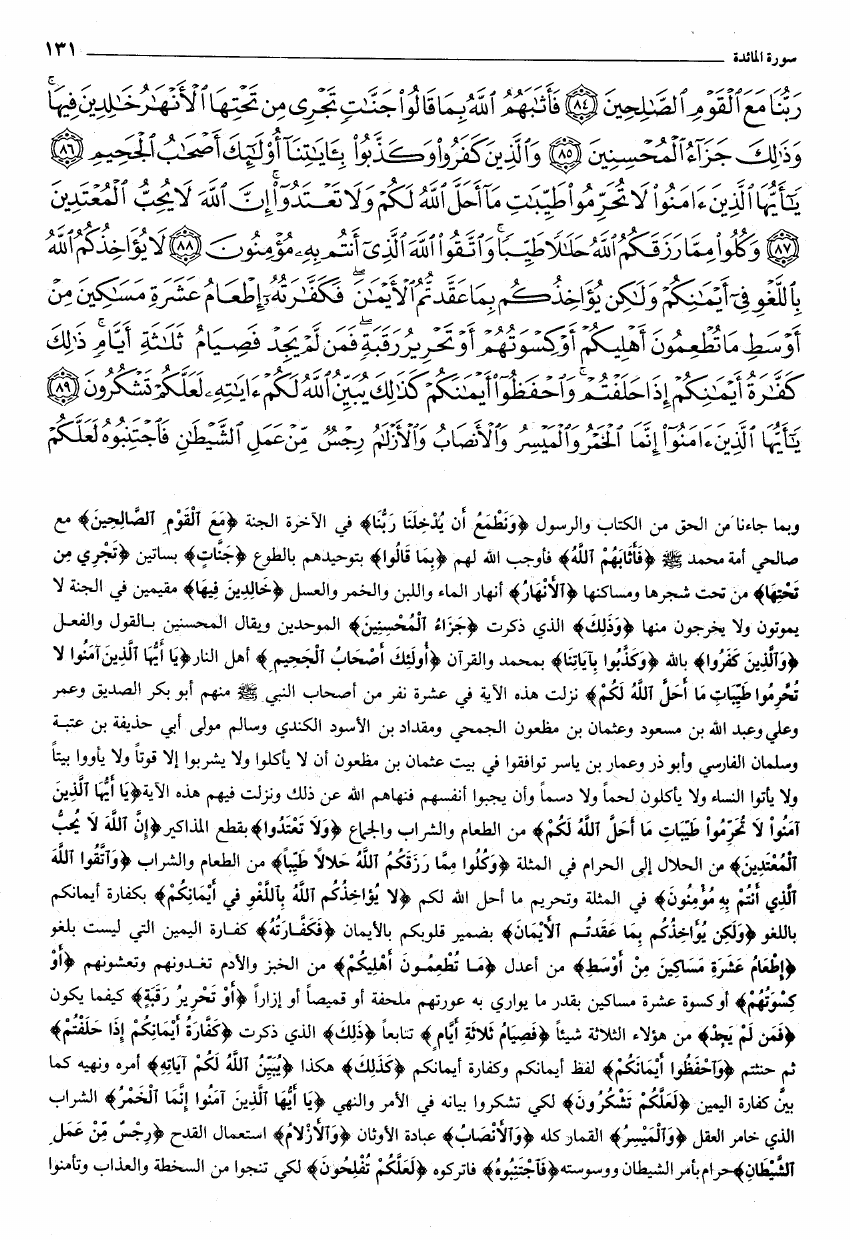 سورة المائدة ١٣١
رَبُّنَا مَعَ ٱلْقَوْمِ ٱلصَّٰلِحِينَ ﴿٨٤﴾ فَأَثَٰبَهُمُ ٱللَّهُ بِمَا قَالُوا۟ جَنَّٰتٍ تَجْرِى مِن تَحْتِهَا ٱلْأَنْهَٰرُ خَٰلِدِينَ فِيهَا ۚ
وَذَٰلِكَ جَزَآءُ ٱلْمُحْسِنِينَ ﴿٨٥﴾ وَٱلَّذِينَ كَفَرُوا۟ وَكَذَّبُوا۟ بِـَٔايَٰتِنَآ أُو۟لَٰٓئِكَ أَصْحَٰبُ ٱلْجَحِيمِ ﴿٨٦﴾
يَٰٓأَيُّهَا ٱلَّذِينَ ءَامَنُوا۟ لَا تُحَرِّمُوا۟ طَيِّبَٰتِ مَآ أَحَلَّ ٱللَّهُ لَكُمْ وَلَا تَعْتَدُوٓا۟ ۚ إِنَّ ٱللَّهَ لَا يُحِبُّ ٱلْمُعْتَدِينَ
﴿٨٧﴾ وَكُلُوا۟ مِمَّا رَزَقَكُمُ ٱللَّهُ حَلَٰلًا طَيِّبًا ۚ وَٱتَّقُوا۟ ٱللَّهَ ٱلَّذِىٓ أَنتُم بِهِۦ مُؤْمِنُونَ ﴿٨٨﴾ لَا يُؤَاخِذُكُمُ ٱللَّهُ
بِٱللَّغْوِ فِىٓ أَيْمَٰنِكُمْ وَلَٰكِن يُؤَاخِذُكُم بِمَا عَقَّدتُّمُ ٱلْأَيْمَٰنَ ۖ فَكَفَّٰرَتُهُۥٓ إِطْعَامُ عَشَرَةِ مَسَٰكِينَ مِنْ
أَوْسَطِ مَا تُطْعِمُونَ أَهْلِيكُمْ أَوْ كِسْوَتُهُمْ أَوْ تَحْرِيرُ رَقَبَةٍ ۖ فَمَن لَّمْ يَجِدْ فَصِيَامُ ثَلَٰثَةِ أَيَّامٍ ۚ ذَٰلِكَ
كَفَّٰرَةُ أَيْمَٰنِكُمْ إِذَا حَلَفْتُمْ ۚ وَٱحْفَظُوٓا۟ أَيْمَٰنَكُمْ ۚ كَذَٰلِكَ يُبَيِّنُ ٱللَّهُ لَكُمْ ءَايَٰتِهِۦ لَعَلَّكُمْ تَشْكُرُونَ ﴿٨٩﴾
يَٰٓأَيُّهَا ٱلَّذِينَ ءَامَنُوٓا۟ إِنَّمَا ٱلْخَمْرُ وَٱلْمَيْسِرُ وَٱلْأَنصَابُ وَٱلْأَزْلَٰمُ رِجْسٌ مِّنْ عَمَلِ ٱلشَّيْطَٰنِ فَٱجْتَنِبُوهُ لَعَلَّكُمْ
وبما جاءنا من الحق من الكتاب والرسول ﴿وَنَطْمَعُ أَن يُدْخِلَنَا رَبُّنَا﴾ في الآخرة الجنة ﴿مَعَ ٱلْقَوْمِ ٱلصَّالِحِينَ﴾ مع
صالحي أمة محمد ﷺ ﴿فَأَثَابَهُمْ ٱللَّهُ﴾ فأوجب الله لهم ﴿بِمَا قَالُوا﴾ بتوحيدهم بالطوع ﴿جَنَّاتٍ﴾ بساتين ﴿تَجْرِي مِن
تَحْتِهَا﴾ من تحت شجرها ومساكنها ﴿ٱلْأَنْهَارُ﴾ أنهار الماء واللبن والخمر والعسل ﴿خَالِدِينَ فِيهَا﴾ مقيمين في الجنة لا
يموتون ولا يخرجون منها ﴿وَذَلِكَ﴾ الذي ذكرت ﴿جَزَاءُ ٱلْمُحْسِنِينَ﴾ الموحدين ويقال المحسنين بالقول والفعل
﴿وَٱلَّذِينَ كَفَرُوا﴾ بالله ﴿وَكَذَّبُوا بِآيَاتِنَا﴾ بمحمد والقرآن ﴿أُولَئِكَ أَصْحَابُ ٱلْجَحِيمِ﴾ أهل النار ﴿يَا أَيُّهَا ٱلَّذِينَ آمَنُوا لا
تُحَرِّمُوا طَيِّبَاتِ مَا أَحَلَّ ٱللَّهُ لَكُمْ﴾ نزلت هذه الآية في عشرة نفر من أصحاب النبي ﷺ منهم أبو بكر الصديق وعمر
وعلي وعبد الله بن مسعود وعثمان بن مظعون الجمحي ومقداد بن الأسود الكندي وسالم مولى أبي حذيفة بن عتبة
وسلمان الفارسي وأبو ذر وعمار بن ياسر توافقوا في بيت عثمان بن مظعون أن لا يأكلوا ولا يشربوا إلا قوتاً ولا يأووا بيتاً
ولا يأتوا النساء ولا يأكلون لحماً ولا دسماً وأن يجبوا أنفسهم فنهاهم الله عن ذلك ونزلت فيهم هذه الآية ﴿يَا أَيُّهَا ٱلَّذِينَ
آمَنُوا لَا تُحَرِّمُوا طَيِّبَاتِ مَا أَحَلَّ ٱللَّهُ لَكُمْ﴾ من الطعام والشراب والجماع ﴿وَلَا تَعْتَدُوا﴾ بقطع المذاكير ﴿إِنَّ ٱللَّهَ لَا يُحِبُّ
ٱلْمُعْتَدِينَ﴾ من الحلال إلى الحرام في المثلة ﴿وَكُلُوا مِمَّا رَزَقَكُمُ ٱللَّهُ حَلَالاً طَيِّباً﴾ من الطعام والشراب ﴿وَٱتَّقُوا ٱللَّهَ
ٱلَّذِي أَنْتُمْ بِهِ مُؤْمِنُونَ﴾ في المثلة وتحريم ما أحل الله لكم ﴿لَا يُؤَاخِذُكُم ٱللَّهُ بِٱللَّغْوِ فِي أَيْمَانِكُمْ﴾ بكفارة أيمانكم
باللغو ﴿وَلَكِن يُؤَاخِذُكُم بِمَا عَقَدتُم ٱلْأَيْمَانَ﴾ بضمير قلوبكم بالأيمان ﴿فَكَفَّارَتُهُ﴾ كفارة اليمين التي ليست بلغو
﴿إِطْعَامُ عَشَرَةِ مَسَاكِينَ مِنْ أَوْسَطِ﴾ من أعدل ﴿مَا تُطْعِمُونَ أَهْلِيكُمْ﴾ من الخبز والأدم تغدونهم وتعشونهم ﴿أَوْ
كِسْوَتُهُمْ﴾ أو كسوة عشرة مساكين بقدر ما يواري به عورتهم ملحفة أو قميصاً أو إزاراً ﴿أَوْ تَحْرِيرُ رَقَبَةٍ﴾ كيفما يكون
﴿فَمَن لَمْ يَجِدْ﴾ من هؤلاء الثلاثة شيئاً ﴿فَصِيَامُ ثَلَاثَةِ أَيَّامٍ﴾ تتابعاً ﴿ذَلِكَ﴾ الذي ذكرت ﴿كَفَّارَةُ أَيْمَانِكُمْ إِذَا حَلَفْتُمْ﴾
ثم حنثتم ﴿وَٱحْفَظُوا أَيْمَانَكُمْ﴾ لفظ أيمانكم وكفارة أيمانكم ﴿كَذَلِكَ﴾ هكذا ﴿يُبَيِّنُ ٱللَّهُ لَكُمْ آيَاتِهِ﴾ أمره ونهيه كما
بيَّن كفارة اليمين ﴿لَعَلَّكُمْ تَشْكُرُونَ﴾ لكي تشكروا بيانه في الأمر والنهي ﴿يَا أَيُّهَا ٱلَّذِينَ آمَنُوا إِنَّمَا ٱلْخَمْرُ﴾ الشراب
الذي خامر العقل ﴿وَٱلْمَيْسِرُ﴾ القمار كله ﴿وَٱلْأَنْصَابُ﴾ عبادة الأوثان ﴿وَٱلْأَزْلَامُ﴾ استعمال القدح ﴿رِجْسٌ مِّنْ عَمَلِ
ٱلشَّيْطَانِ﴾ حرام بأمر الشيطان ووسوسته ﴿فَٱجْتَنِبُوهُ﴾ فاتركوه ﴿لَعَلَّكُمْ تُفْلِحُونَ﴾ لكي تنجوا من السخطة والعذاب وتأمنوا